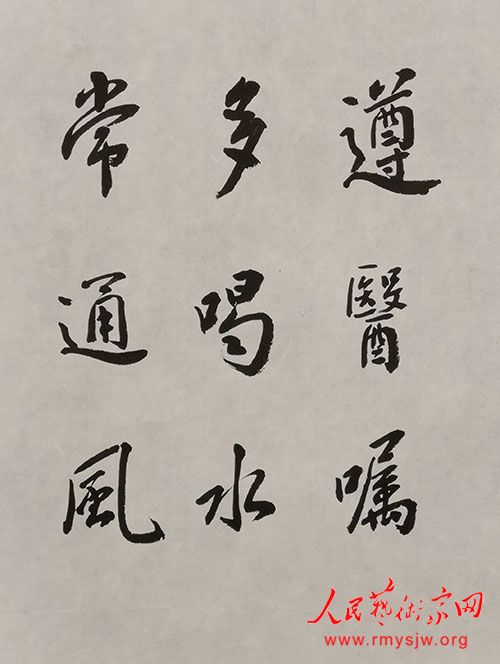 遵醫嘱
多喝水
常通風
人民藝術家网
www.rmysjw.org